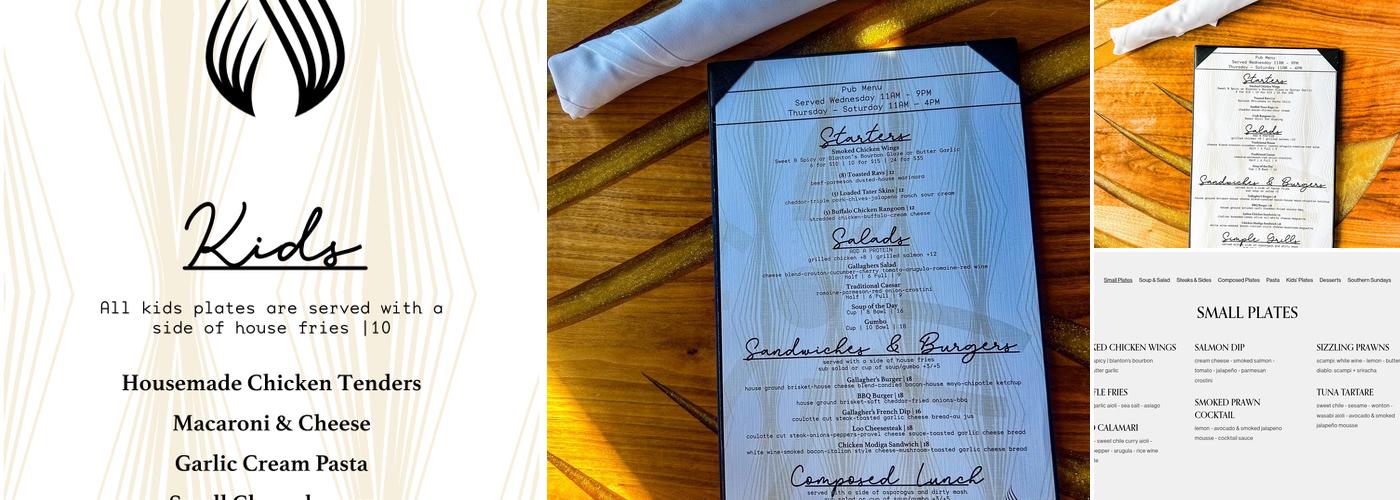 Kids
All kids plates are served with a
side of house fries |10
Housemade Chicken Tenders
Macaroni & Cheese
Garlic Cream Pasta
Pub Menu
Served Wednesday 11AM - 9PM
Thursday - Saturday 11AM - 4PM
Starters
Smoked Chicken Wings
Sweet N Spicy or Blanton's Bourbon Glaze or Butter Garlic
6 for $10 | 10 for $15 | 24 for $35
(8) Toasted Ravs | 12
beef-parmesan dusted-house marinara
(5) Loaded Tater Skins | 12
cheddar-triple pork-chives-jalapeño ranch sour cream
(5) Buffalo Chicken Rangoon | 12
shredded chicken-buffalo-cream cheese
Salads
ADD A PROTEIN
grilled chicken +8 | grilled salmon +12
Gallaghers Salad
cheese blend-crouton-cucumber-cherry tomato-arugula-romaine-red wine
Half | 6 Full | 9
Traditional Caesar
romaine-parmesan-red onion-crostini
Half | 6 Full | 9
Soup of the Day
Cup | 8 Bowl | 16
Gumbo
Cup | 10 Bowl | 18
Sandwiches & Burgers
served with a side of house fries
sub salad or cup of soup/gumbo +3/+5
Gallagher's Burger | 18
house ground brisket-house cheese blend-candied bacon-house mayo-chipotle ketchup
BBQ Burger | 18
house ground brisket-soft cheddar-fried onions-bbq
Gallagher's French Dip | 16
coulotte cut steak-toasted garlic cheese bread-au jus
Loo Cheesesteak | 18
coulotte cut steak-onions-peppers-provel cheese sauce-toasted garlic cheese bread
Chicken Modiga Sandwich | 18
white wine-smoked bacon-italian style cheese-mushroom-toasted garlic cheese bread
Composed Lunch
served with a side of asparagus and dirty mash
sub salad or cup of soup/gumbo +3/+5
Pub Menu
Served Wednesday 11AM - 9PM
Thursday - Saturday 11AM - 4PM
Starters
Smoked Chicken Wings
Salads
Sandwiches & Burgers
Simple Grills
Small Plates Soup & Salad Steaks & Sides Composed Plates Pasta Kids' Plates Desserts Southern Sundays
SMALL PLATES
KED CHICKEN WINGS
spicy | blanton's bourbon
utter garlic
FLE FRIES
garlic aioli - sea salt - asiago
CALAMARI
- sweet chile curry aioli -
pepper - arugula - rice wine
SALMON DIP
cream cheese - smoked salmon -
tomato - jalapeño - parmesan
crostini
SMOKED PRAWN
COCKTAIL
lemon - avocado & smoked jalapeno
mousse - cocktail sauce
SIZZLING PRAWNS
scampi: white wine - lemon - butter
diablo: scampi + sriracha
TUNA TARTARE
sweet chile - sesame - wonton -
wasabi aioli - avocado & smoked
jalapeño mousse